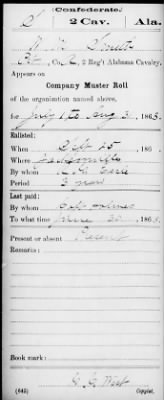 Confederate.
S 2 Cav. Ala.
W. M. Smith
Pvt, Co. 2 Reg't Alabama Cavalry,
Appears on
Company Muster Roll
of the organization named above,
for July 1 to Aug 31, 1863.
Enlisted:
When Sept 25, 186
Where Jacksonville
By whom
Period 3 years
Last paid:
By whom Capt
To what time June 30, 1863.
Present or absent Present
Remarks:
Book mark:
(642) Copyist.